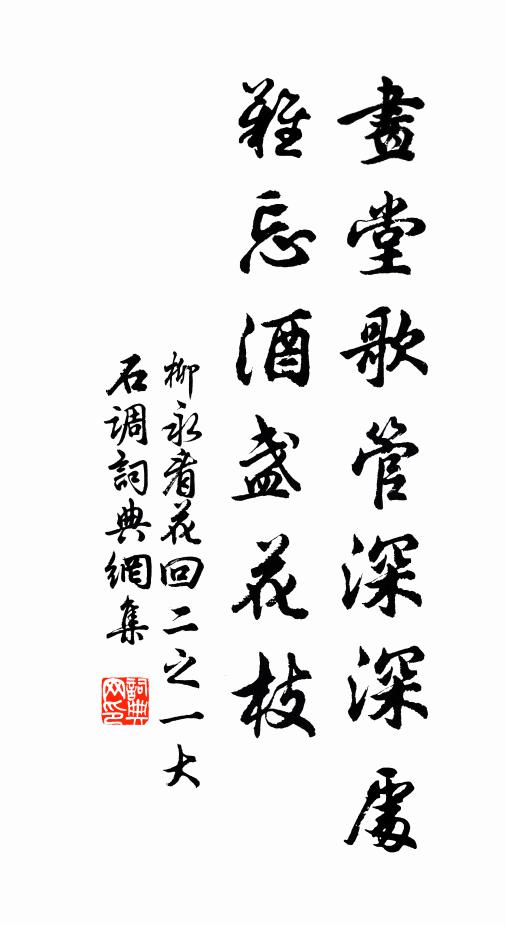 畫堂歌管深深處
難忘酒盞花枝
柳永看花回二之一大
石调詞典網集
詞典网印